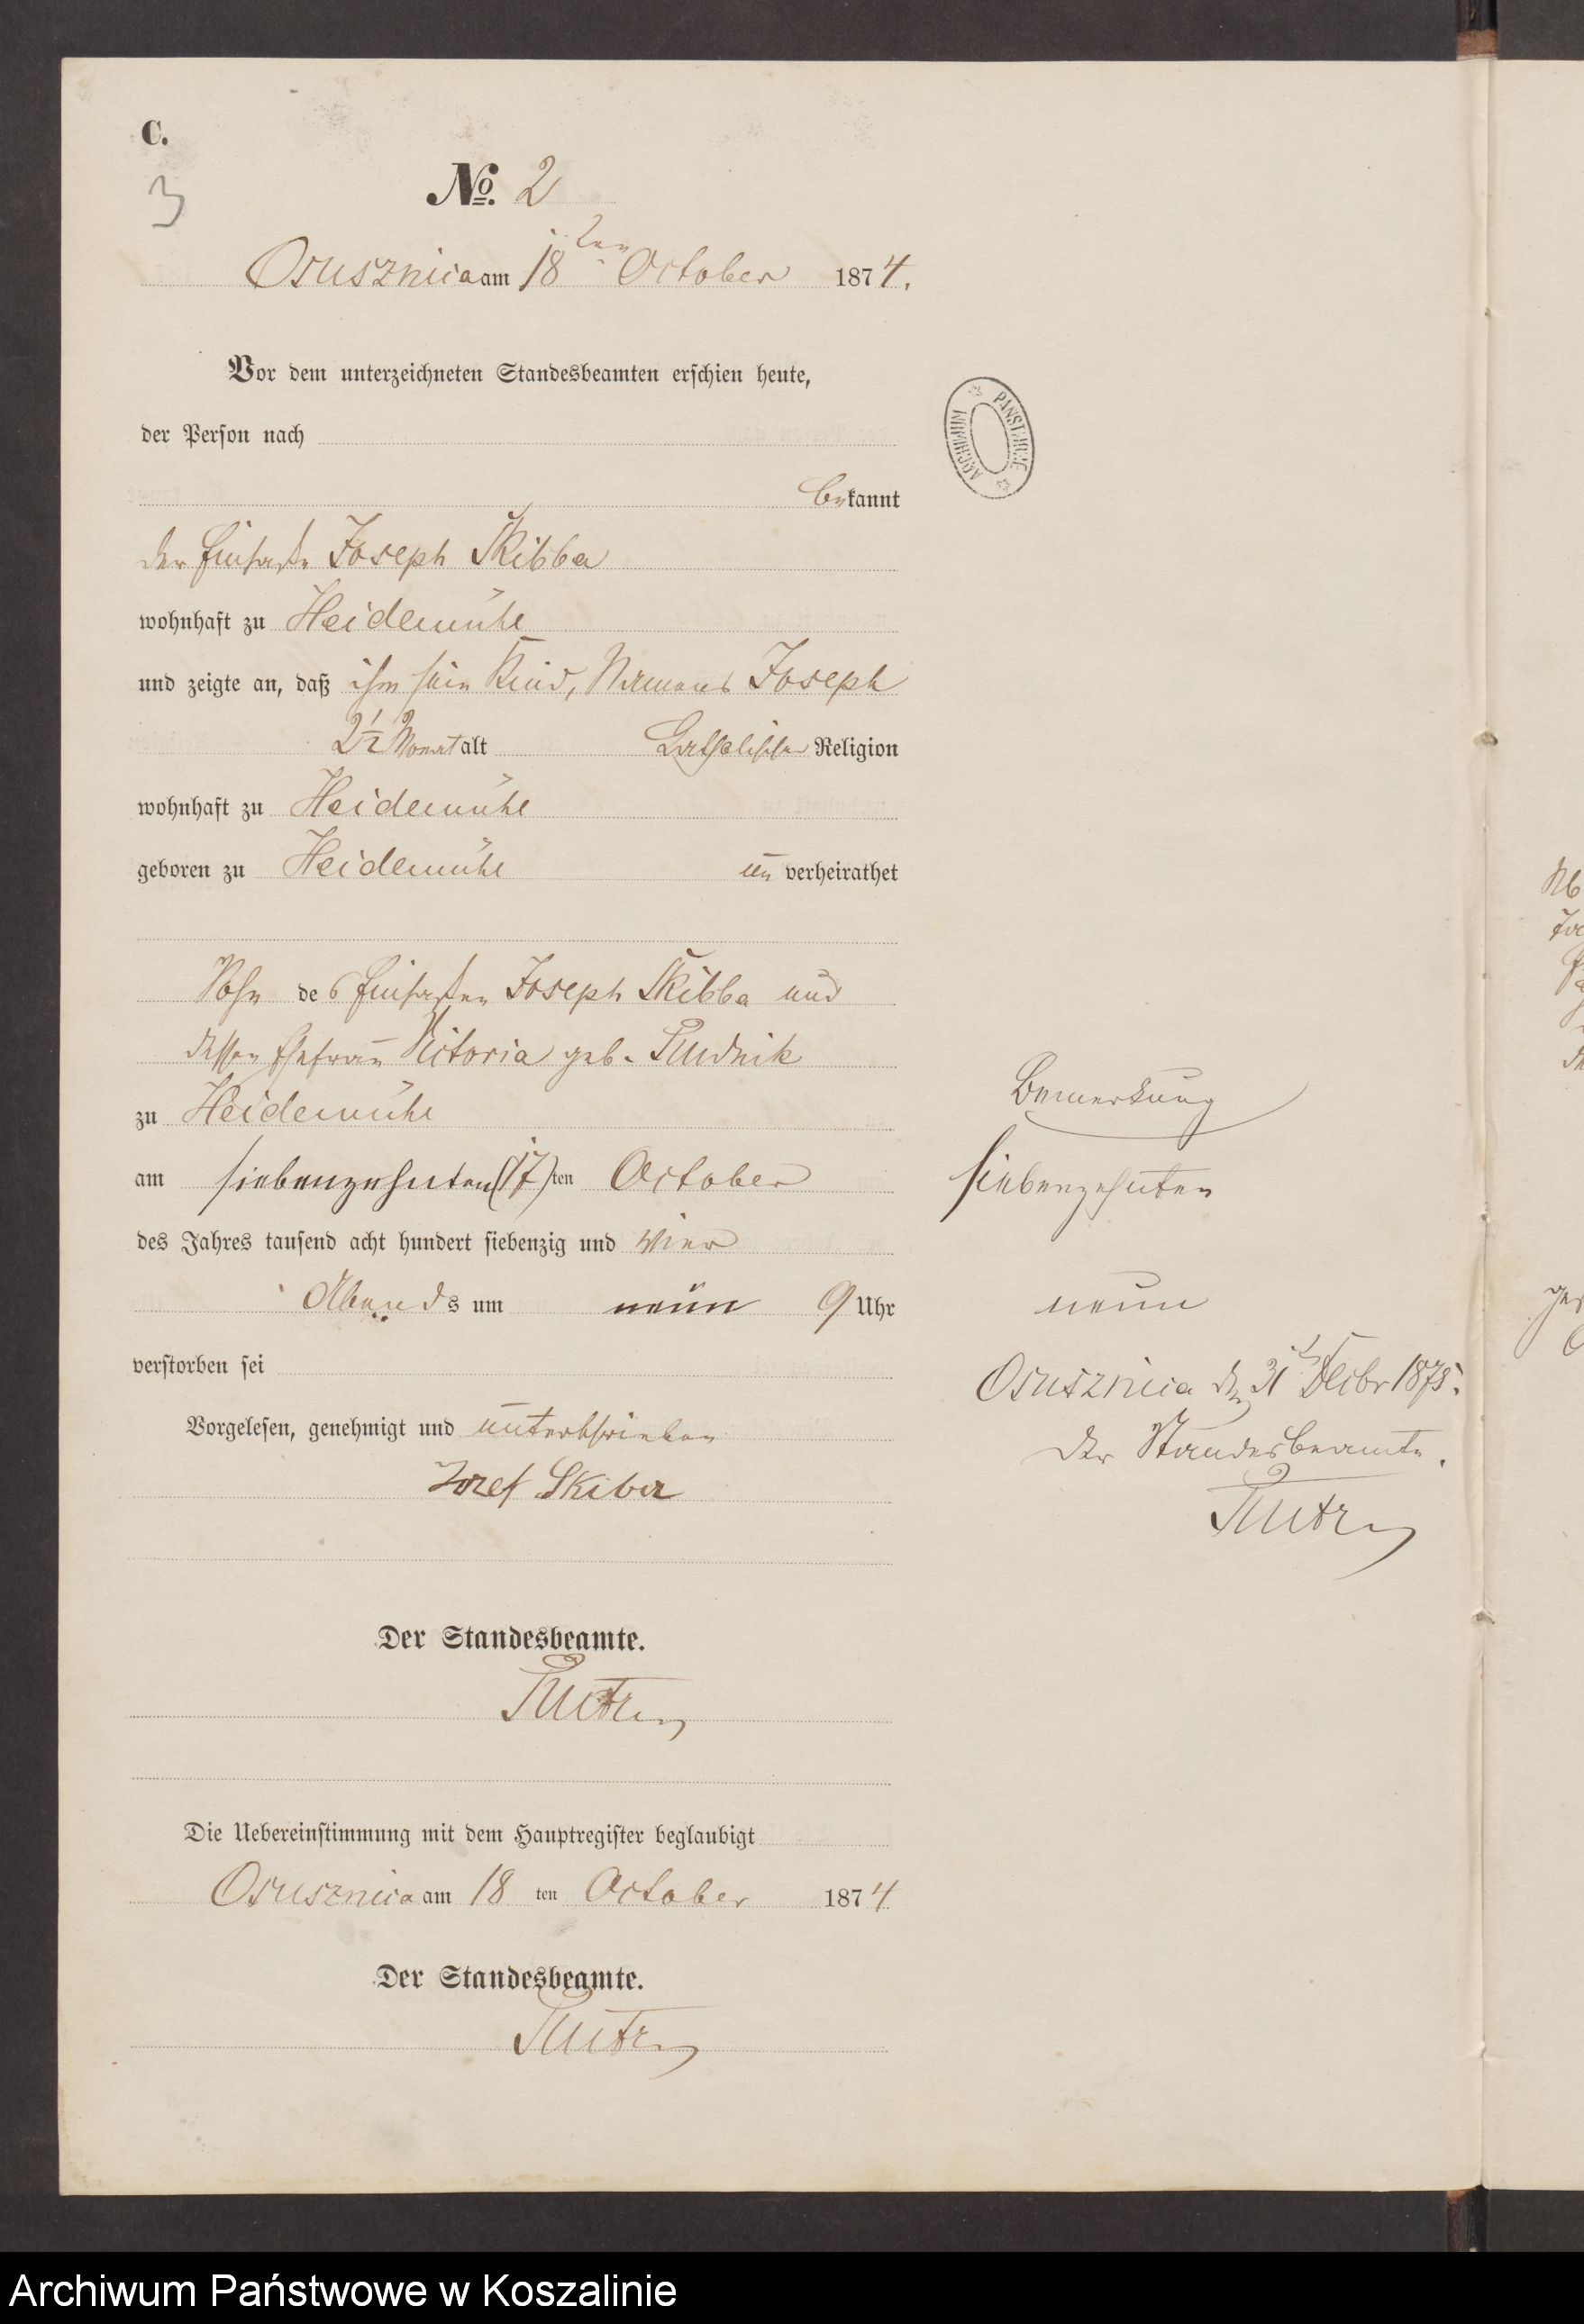 C.
3
No. 2
Osusznica am 18ten October 1874.
Vor dem unterzeichneten Standesbeamten erschien heute,
der Person nach
bekannt
der Einsasse Joseph Skibba
wohnhaft zu Heidemühl
und zeigte an, daß ihm sein Kind, Namens Joseph
2 1/2 Monat alt katholischer Religion
wohnhaft zu Heidemühl
geboren zu Heidemühl unverheirathet
Sohn des Einsassen Joseph Skibba und
dessen Ehefrau Victoria geb. Rudnik
zu Heidemühl
am siebenzehnten (17)ten October
des Jahres tausend acht hundert siebenzig und vier
Abends um neun 9 Uhr
verstorben sei
Vorgelesen, genehmigt und unterschrieben
Jozef Skiba
Der Standesbeamte.
Die Uebereinstimmung mit dem Hauptregister beglaubigt
Osusznica am 18 ten October 1874
Der Standesbeamte.
ARCHIWUM PAŃSTWOWE
Bemerkung
siebenzehnten
neun
Osusznica den 31t Decbr 1875.
Der Standesbeamte.
Archiwum Państwowe w Koszalinie